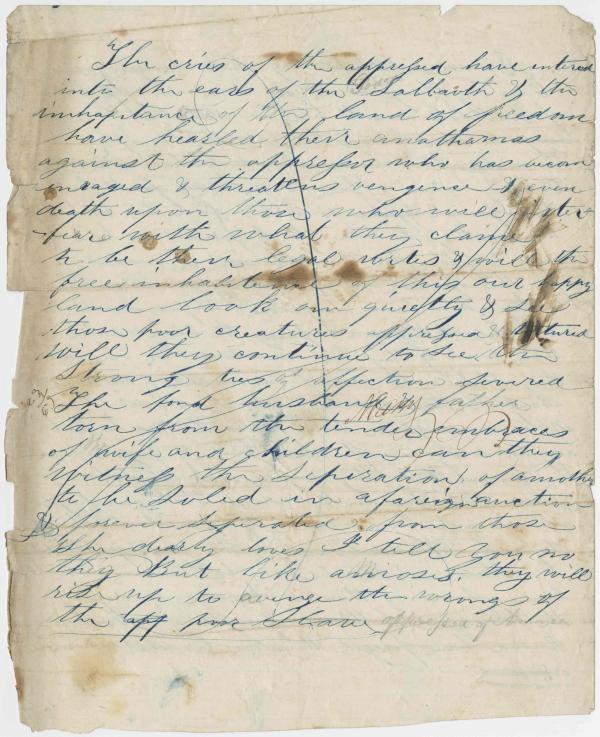 The cries of the oppressed have entered
into the ears of the Sabbaoth & the
inhabitance of the land of freedom
have hearled their anathamas
against the oppressor who has becom
enraged & threatens vengence & even
death upon those who will inter
fear with what they claim
to be their legal rites & will the
free inhabitence of this our happy
land look on quietly & see
those poor creatures oppressed & tortured
will they continue to see the
Strong ties of affection severed
The fond husband father
torn from the tender embraces
of wife and children can they
Witness the seperation of a mother
to be Soled in a foreign auction
& forever seperated from those
She dearly loves I tell you no
they But like a moses, they will
rise up to avenge the wrongs of
the app poor Slave oppressed of